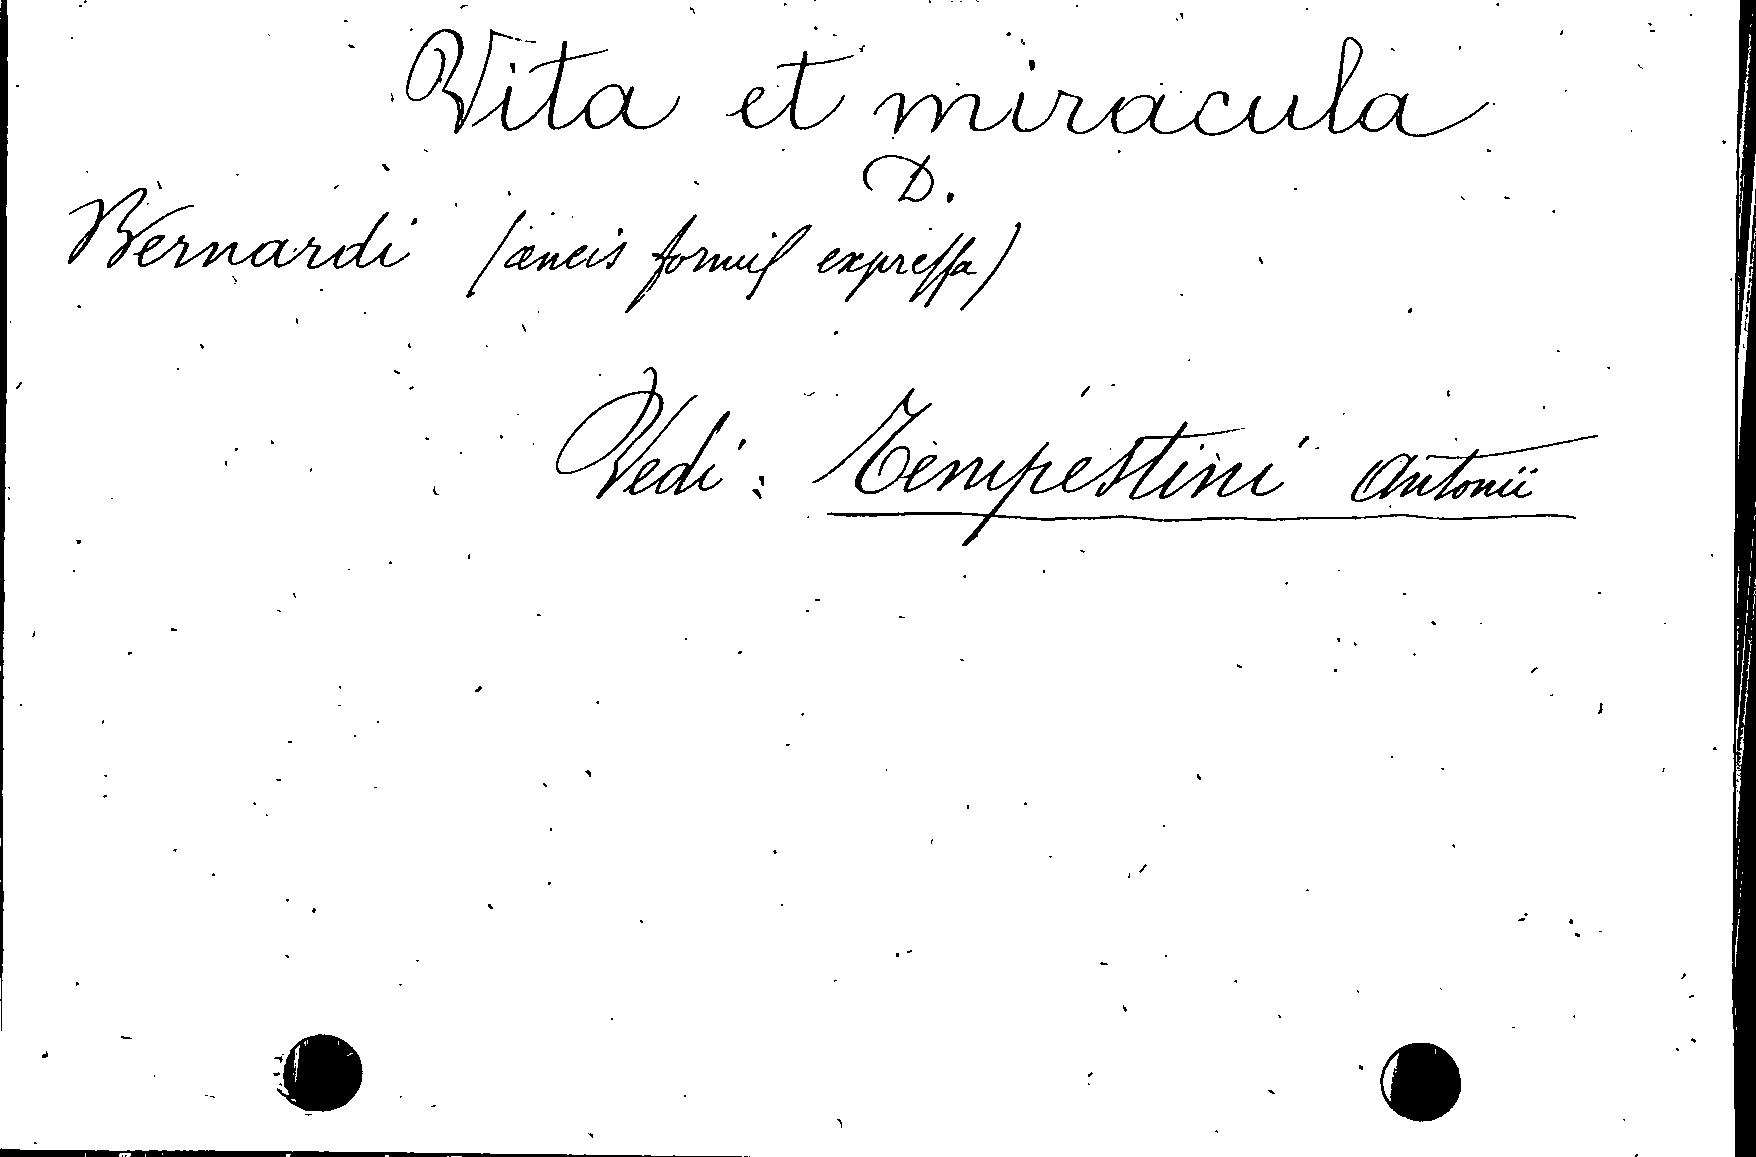 Vita et miracula
D.
Bernardi (æneis formis expressa)
Vedi: Tempestini Antonii